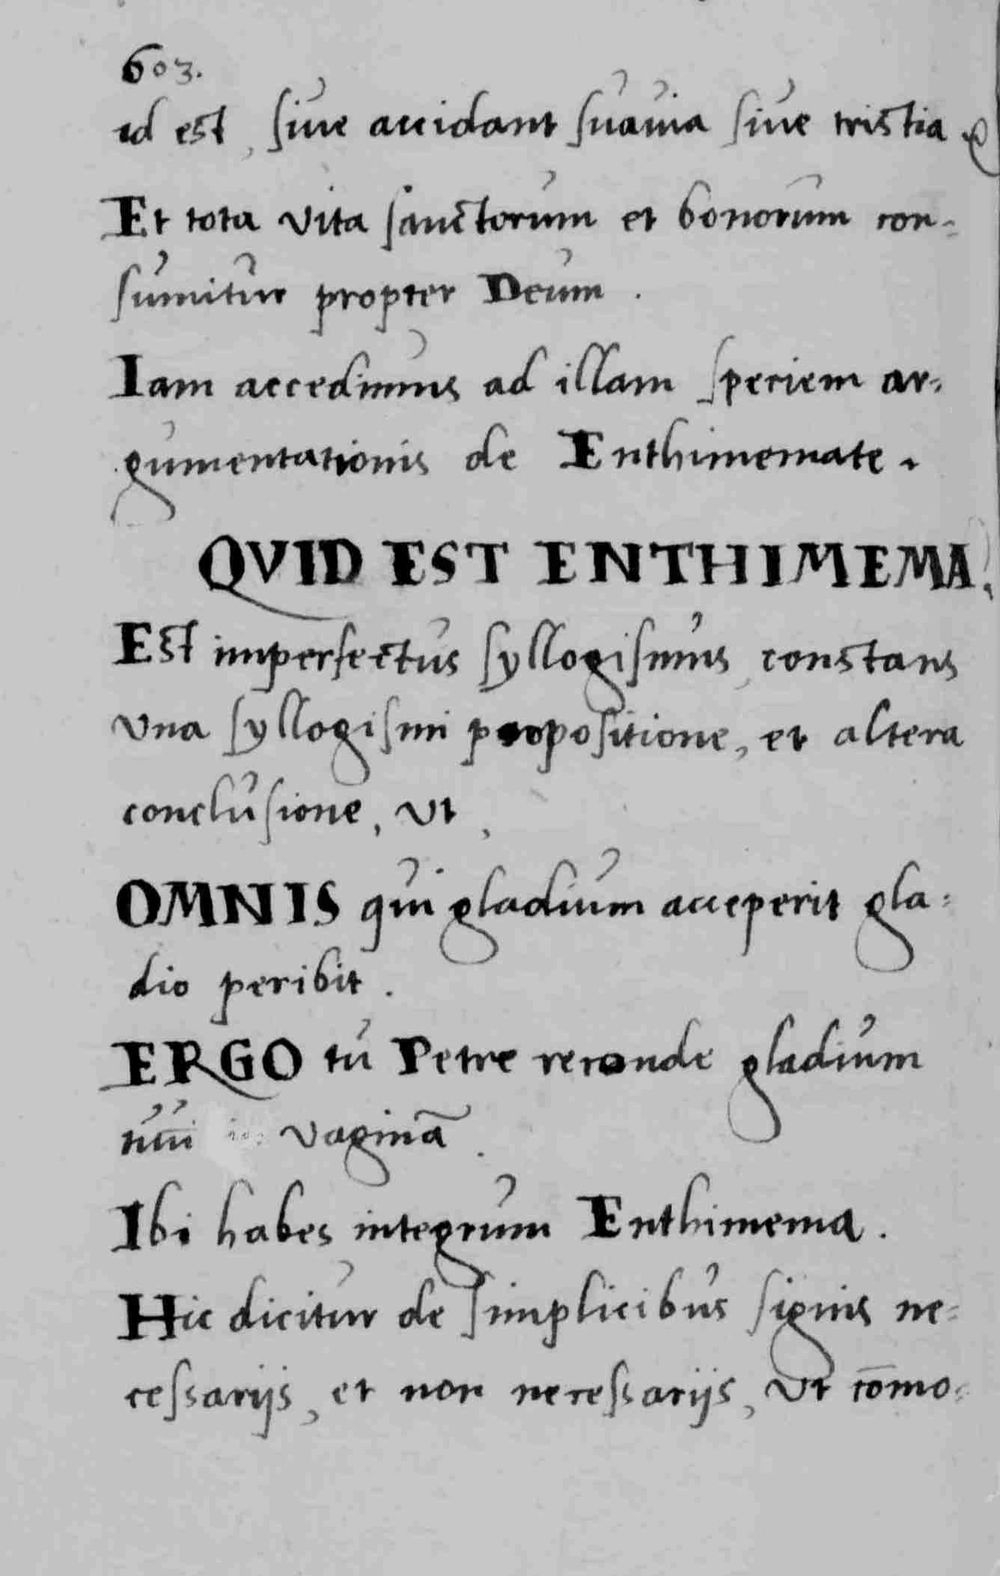 603.
id est, siue accidant suauia siue tristia &
Et tota vita sanctorum et bonorum con-
sumitur propter Deum.
Iam accedimus ad illam speciem ar-
gumentationis de Enthimemate.
QVID EST ENTHIMEMA.
Est imperfectus syllogismus, constans
vna syllogismi propositione, et altera
conclusione, vt,
OMNIS qui gladium acceperit gla-
dio peribit.
ERGO tu Petre reconde gladium
tuū in vaginā.
Ibi habes integrum Enthimema.
Hic dicitur de simplicibus signis ne-
cessarijs, et non necessarijs, vt cōmo-